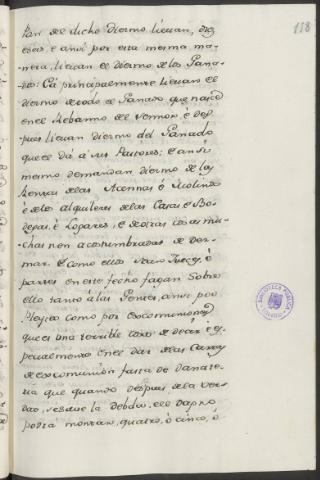 118
san del dicho Diezmo lievan, diez
e seis, e ansi por esta mesma ma-
nera, lievan el diezmo de los Gana-
dos: Ca principalmente lievan el
diezmo de todo el Ganado que nasció
en el Rebanno del Sennor, é des-
pues lievan diezmo del Ganado
que el dá á sus Pastores: E ansi
mesmo demandan diezmo de las
Rentas de las Acennas é Molinos
é de los alquileres de las Casas é Bo-
degas, é Logares, é de otras cosas mu-
chas non acostumbradas de Dez-
mar. E como ellos sean Jueces, é
partes en este fecho fagan sobre
ello tanto á las Gentes, ansi por
Plegios como por Excomuniones
que es una terrible cosa de decir é es-
pecialmente en el dar de las Cartas
de excomunión fasta de Danate-
ma que quando despues de la ver-
dad, se sabe la debda, el
podrá montar, quatro, ó cinco, ó
BIBLIOTECA PUBLICA
TOLEDO